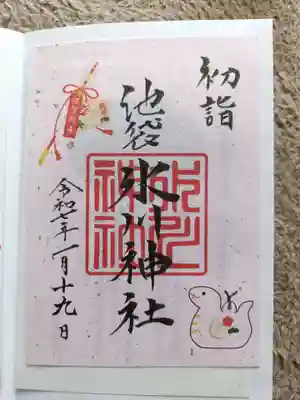 初詣
池袋
氷川神社
令和七年一月十九日
氷川
神社